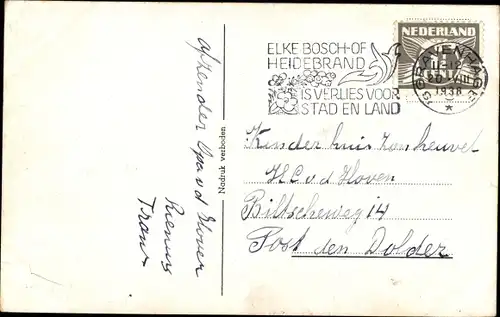 ELKE BOSCH-OF
HEIDEBRAND
IS VERLIES VOOR
STAD EN LAND
NEDERLAND
'S-GRAVENHAGE
1938
afzender
Opa v d Hoven
Nadruk verboden
Kinder huis Zonheuvel
H C v d Hoven
Biltscheweg 14
Post den Dolder